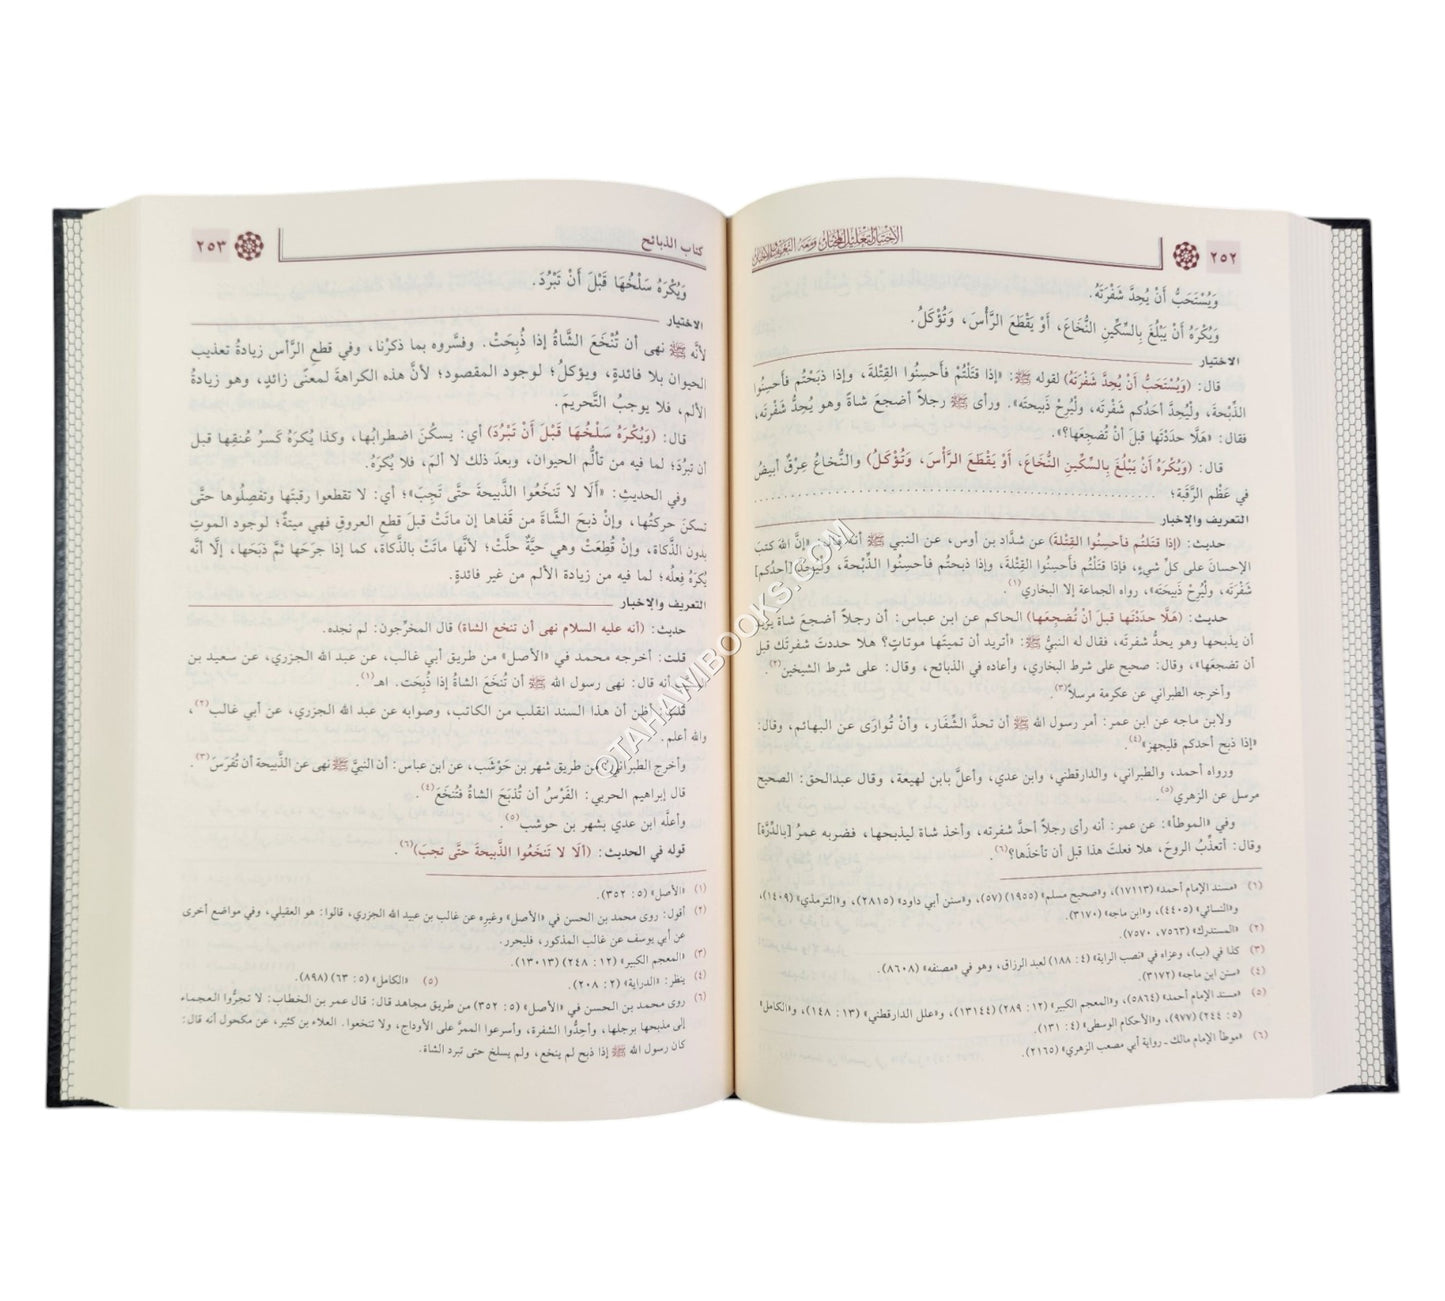 ٢٥٢
الاختيار لتعليل المختار ومعه التعريف والإخبار
وَيُسْتَحَبُّ أَنْ يُحِدَّ شَفْرَتَهُ.
وَيُكْرَهُ أَنْ يَبْلُغَ بِالسِّكِّينِ النُّخَاعَ، أَوْ يَقْطَعَ الرَّأْسَ، وَتُؤْكَلُ.
الاختيار
قال: (وَيُسْتَحَبُّ أَنْ يُحِدَّ شَفْرَتَهُ) لقوله ﷺ: «إذا قَتَلْتُمْ فَأَحسِنُوا القِتْلةَ، وإذا ذَبَحْتُم فَأَحسِنُوا
الذِّبْحةَ، ولْيُحِدَّ أحَدُكم شَفْرَتَه، ولْيُرِحْ ذَبيحتَه». ورأى ﷺ رجلاً أضجعَ شاةً وهو يُحِدُّ شَفْرتَه،
فقال: «هَلَّا حَدَدْتَها قبلَ أنْ تُضجِعَها؟».
قال: (وَيُكْرَهُ أَنْ يَبْلُغَ بِالسِّكِّينِ النُّخَاعَ، أَوْ يَقْطَعَ الرَّأْسَ، وَتُؤْكَلُ) والنُّخاعُ عِرْقٌ أبيضُ
في عَظْمِ الرَّقَبة؛
التعريف والإخبار
حديث: (إذا قتَلتُم فأحسِنُوا القِتْلة) عن شدَّاد بن أوس، عن النبي ﷺ أنه قال: «إنَّ الله كتبَ
الإحسانَ على كلِّ شيءٍ، فإذا قتَلْتُم فأحسِنُوا القِتْلةَ، وإذا ذبحتُم فأحسِنُوا الذِّبْحةَ، وليُحِدَّ [أحدُكم]
شَفْرَتَه، ولْيُرِحْ ذَبيحتَه»، رواه الجماعة إلا البخاري(١).
حديث: (هَلَّا حدَدْتَها قبلَ أنْ تُضجِعَها) الحاكم عن ابن عباس: أن رجلاً أضجعَ شاةً يريد
أن يذبحها وهو يحدُّ شفرتَه، فقال له النبيُّ ﷺ: «أتريد أن تميتَها موتاتٍ؟ هلا حددتَ شفرتَك قبل
أن تضجعَها»، وقال: صحيح على شرط البخاري، وأعاده في الذبائح، وقال: على شرط الشيخين(٢).
وأخرجه الطبراني عن عكرمة مرسلاً(٣).
ولابن ماجه عن ابن عمر: أمر رسول الله ﷺ أن تحدَّ الشِّفَار، وأنْ تُوارَى عن البهائم، وقال:
«إذا ذبح أحدكم فليجهز»(٤).
ورواه أحمد، والطبراني، والدارقطني، وابن عدي، وأعلَّ بابن لهيعة، وقال عبدالحق: الصحيح
مرسل عن الزهري(٥).
وفي «الموطأ»: عن عمر: أنه رأى رجلاً أحدَّ شفرته، وأخذ شاة ليذبحها، فضربه عمرُ [بالدِّرَّة]
وقال: أتعذِّبُ الروحَ، هلا فعلتَ هذا قبل أن تأخذَها؟(٦).
(١) «مسند الإمام أحمد» (١٧١١٣)، و«صحيح مسلم» (١٩٥٥) (٥٧)، و«سنن أبي داود» (٢٨١٥)، و«الترمذي» (١٤٠٩)،
و«النسائي» (٤٤٠٥)، و«ابن ماجه» (٣١٧٠).
(٢) «المستدرك» (٧٥٦٣، ٧٥٧٠).
(٣) كذا في (ب)، وعزاه في «نصب الراية» (٤: ١٨٨) لعبد الرزاق، وهو في «مصنفه» (٨٦٠٨).
(٤) «سنن ابن ماجه» (٣١٧٢).
(٥) «مسند الإمام أحمد» (٥٨٦٤)، و«المعجم الكبير» (١٢: ٢٨٩) (١٣١٤٤)، و«علل الدارقطني» (١٣: ١٤٨)، و«الكامل»
(٥: ٢٤٤) (٩٧٧)، و«الأحكام الوسطى» (٤: ١٣١).
(٦) «موطأ الإمام مالك ـ رواية أبي مصعب الزهري» (٢١٦٥).
كتاب الذبائح
٢٥٣
وَيُكْرَهُ سَلْخُهَا قَبْلَ أَنْ تَبْرُدَ.
الاختيار
لأنَّه ﷺ نهى أن تُنْخَعَ الشَّاةُ إذا ذُبِحَتْ. وفسَّروه بما ذكرْنا، وفي قطعِ الرَّأس زيادةُ تعذيب
الحيوان بلا فائدةٍ، ويؤكلُ؛ لوجود المقصود؛ لأنَّ هذه الكراهةَ لمعنًى زائدٍ، وهو زيادةُ
الألم، فلا يوجبُ التَّحريمَ.
قال: (وَيُكْرَهُ سَلْخُهَا قَبْلَ أَنْ تَبْرُدَ) أي: يسكُنَ اضطرابُها، وكذا يُكرَهُ كَسرُ عُنقِها قبل
أن تبرُدَ؛ لما فيه من تألُّم الحيوان، وبعدَ ذلك لا ألمَ، فلا يُكرَهُ.
وفي الحديثِ: «أَلَا لا تَنخَعُوا الذَّبيحةَ حتَّى تَجِبَ»؛ أي: لا تقطعوا رقبتَها وتفصِلُوها حتَّى
تسكنَ حركتُها، وإنْ ذبحَ الشَّاةَ من قَفاها إن ماتَتْ قبلَ قطعِ العروقِ فهي ميتةٌ؛ لوجود الموتِ
بدون الذَّكاة، وإنْ قُطِعَتْ وهي حيَّةٌ حلَّتْ؛ لأنَّها ماتَتْ بالذَّكاة، كما إذا جرَحَها ثمَّ ذبَحَها، إلَّا أنَّه
يُكرَهُ فِعلُه؛ لما فيه من زيادة الألم من غير فائدةٍ.
التعريف والإخبار
حديث: (أنه عليه السلام نهى أن تنخع الشاة) قال المخرِّجون: لم نجده.
قلت: أخرجه محمد في «الأصل» من طريق أبي غالب، عن عبد الله الجزري، عن سعيد بن
أنه قال: نهى رسول الله ﷺ أن تُنخَعَ الشاةُ إذا ذُبِحَت. اهـ(١).
قلت: أظن أن هذا السند انقلب من الكاتب، وصوابه عن عبد الله الجزري، عن أبي غالب(٢)،
والله أعلم.
وأخرج الطبراني من طريق شهر بن حَوْشَب، عن ابن عباس: أن النبيَّ ﷺ نهى عن الذَّبيحة أن تُفرَسَ(٣).
قال إبراهيم الحربي: الفَرْسُ أن تُذبَحَ الشاةُ فتُنخَعَ(٤).
وأعلَّه ابن عدي بشهر بن حوشب(٥).
قوله في الحديث: (أَلَا لا تَنخَعُوا الذَّبيحةَ حتَّى تجبَ)(٦).
(١) «الأصل» (٥: ٣٥٢).
(٢) أقول: روى محمد بن الحسن في «الأصل» وغيرِه عن غالب بن عبيد الله الجزري، قالوا: هو العقيلي، وفي مواضع أخرى
عن أبي يوسف عن غالب المذكور، فليحرر.
(٣) «المعجم الكبير» (١٢: ٢٤٨) (١٣٠١٣).
(٤) ينظر: «الدراية» (٢: ٢٠٨). (٥) «الكامل» (٥: ٦٣) (٨٩٨).
(٦) روى محمد بن الحسن في «الأصل» (٥: ٣٥٢) من طريق مجاهد قال: قال عمر بن الخطاب: لا تجرُّوا العجماء
إلى مذبحها برجلها، وأَحِدُّوا الشفرة، وأسرعوا الممرَّ على الأوداج، ولا تنخعوا. العلاء بن كثير، عن مكحول أنه قال:
كان رسول الله ﷺ إذا ذبح لم ينخع، ولم يسلخ حتى تبرد الشاة.
©TAHAWIBOOKS.COM